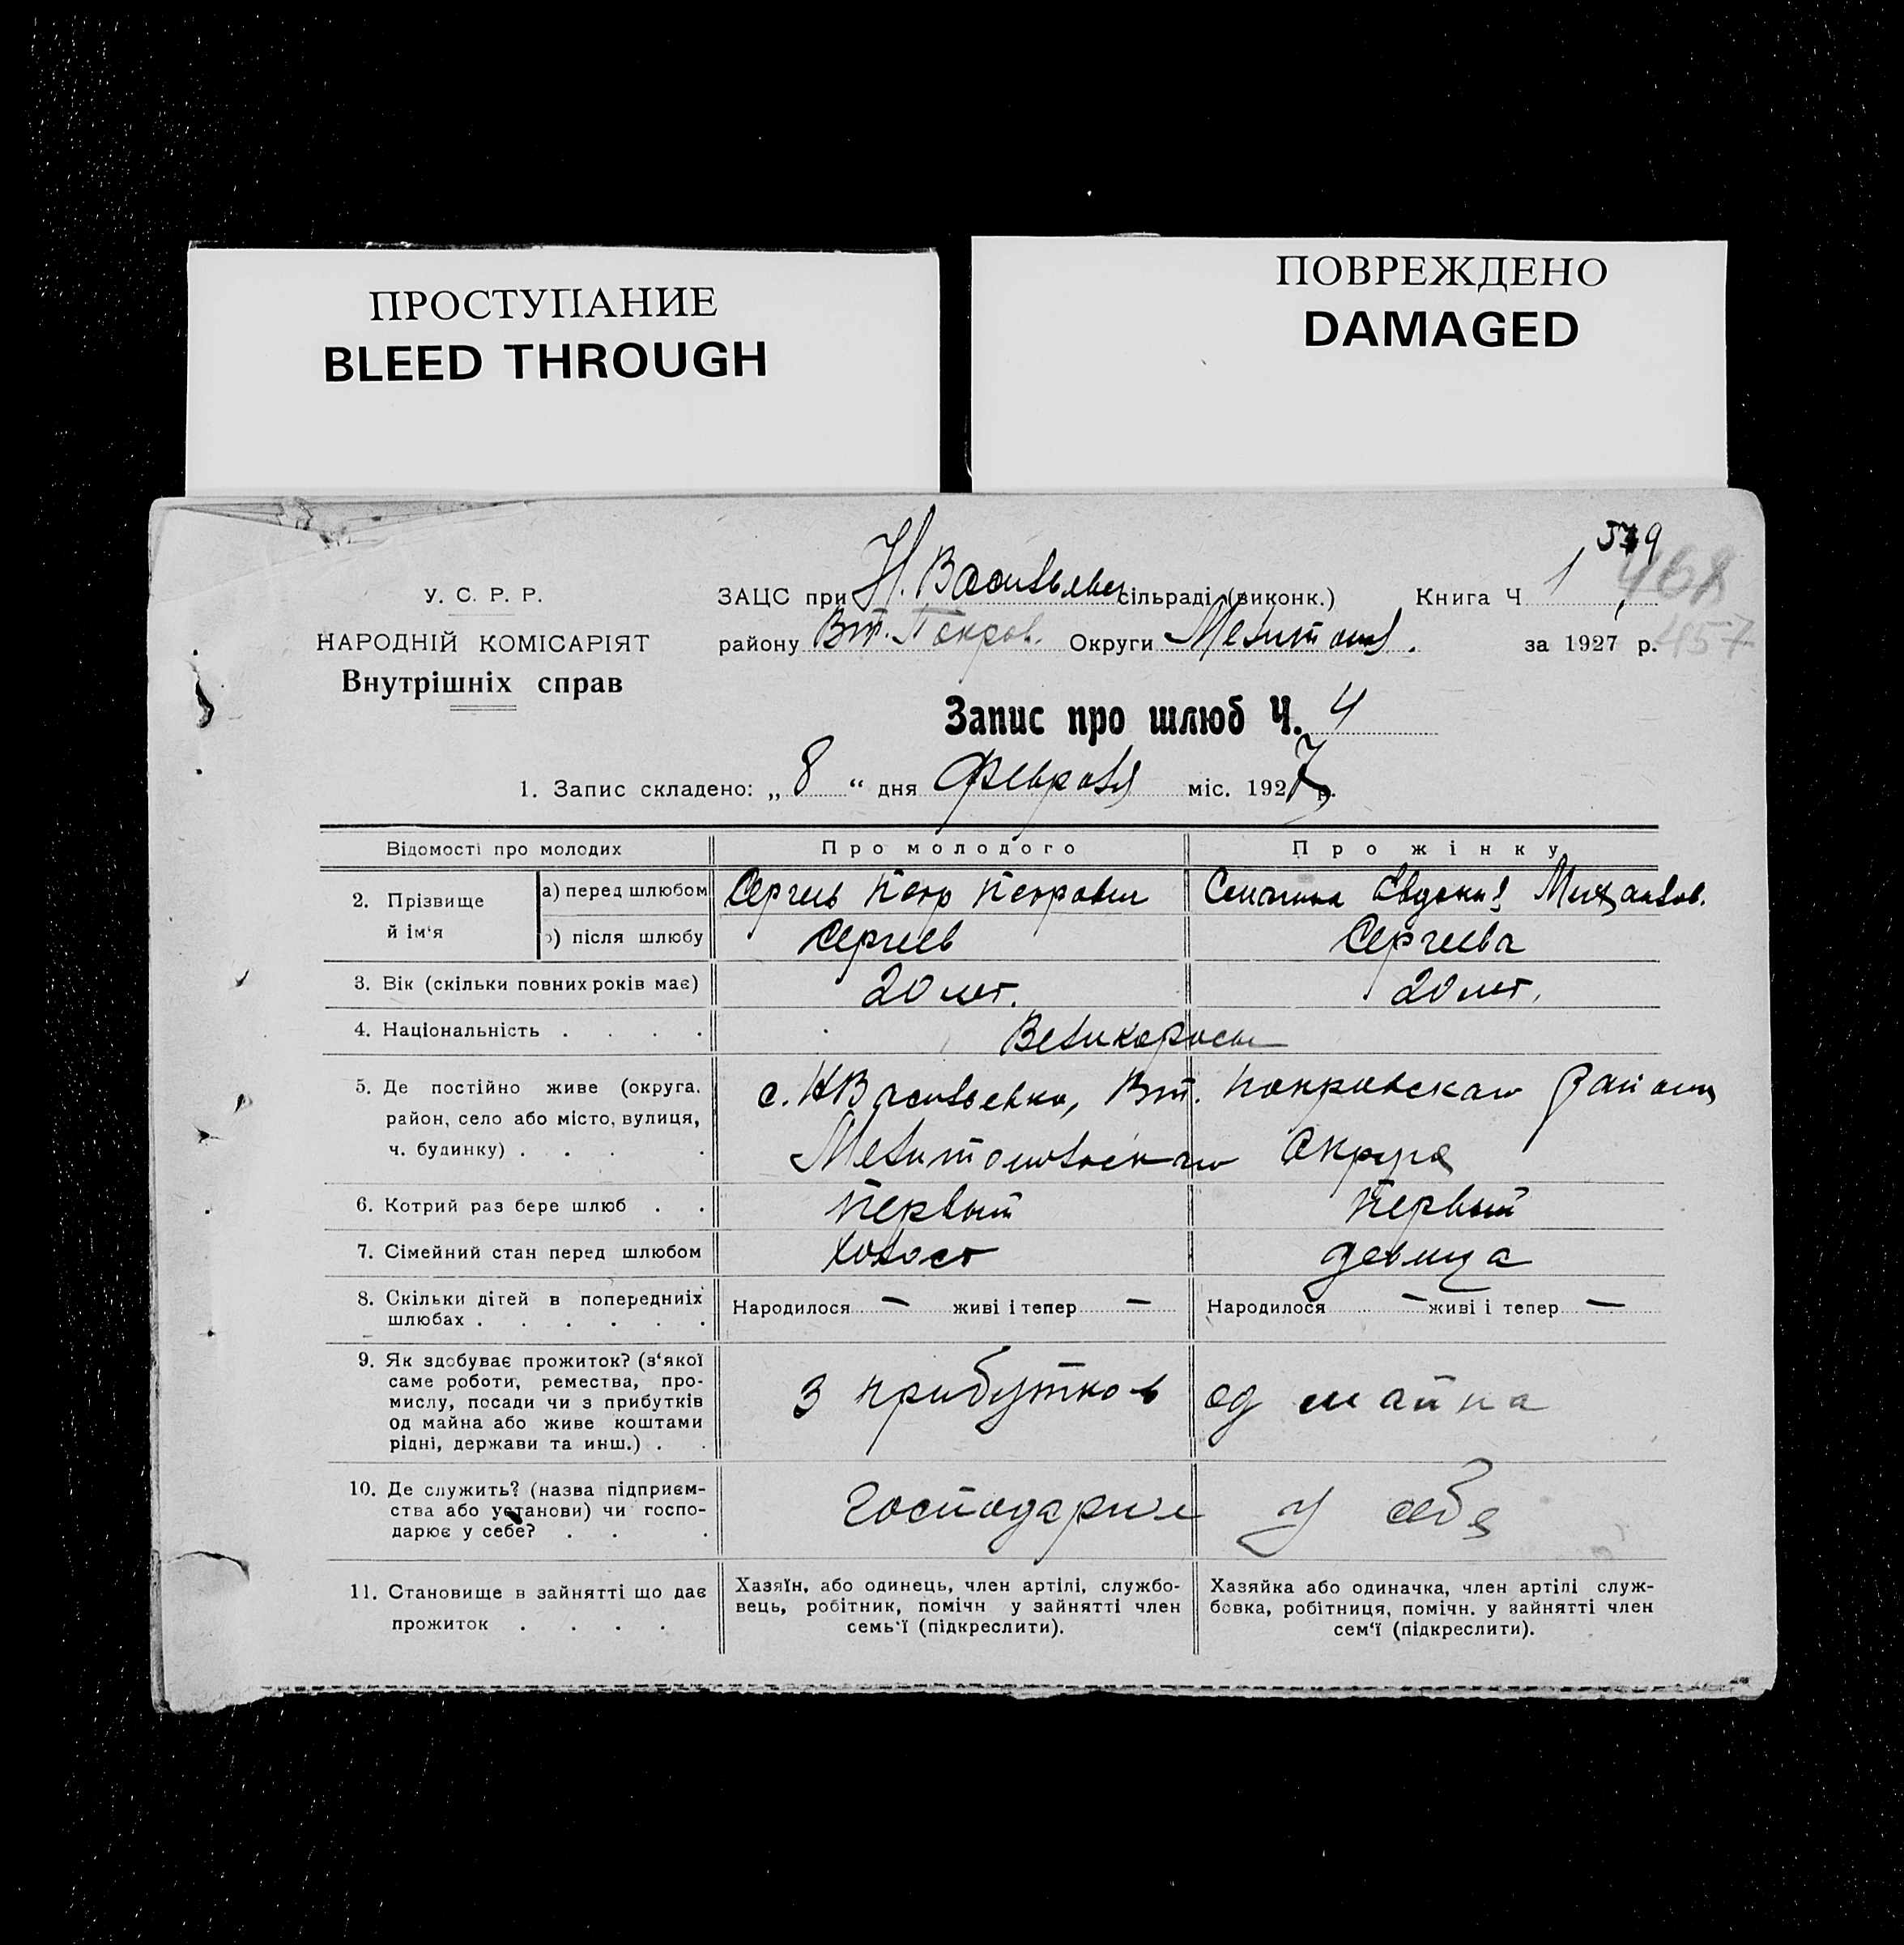 ПРОСТУПАНИЕ
BLEED THROUGH
ПОВРЕЖДЕНО
DAMAGED
У. С. Р. Р.
НАРОДНІЙ КОМІСАРІЯТ
Внутрішніх справ
ЗАЦС при Н. Васильевск сільраді (виконк.) Книга Ч 1
468
району Вт. Покров. Округи Мелитоп. за 1927 р. 457
Запис про шлюб Ч. 4
1. Запис складено: „ 8 “ дня Февраля міс. 1927 р.
Відомості про молодих Про молодого Про жінку
2. Прізвище й ім‘я а) перед шлюбом Сергеев Петр Петрович Евдокия Михайлов.
б) після шлюбу Сергеев Сергеева
3. Вік (скільки повних років має) 20 лет. 20 лет.
4. Національність . . . . Великороссы
5. Де постійно живе (округа,
район, село або місто, вулиця,
ч. будинку) . . . .
с. НВасильевка, Вт. Покровскаго Района
Мелитопольскаго Округа
6. Котрий раз бере шлюб . . Первый Первый
7. Сімейний стан перед шлюбом Холост девица
8. Скільки дітей в попередниіх
шлюбах . . . . . .
Народилося — живі і тепер — Народилося — живі і тепер —
9. Як здобуває прожиток? (з‘якої
саме роботи, ремества, про-
мислу, посади чи з прибутків
од майна або живе коштами
рідні, держави та инш.) . .
З прибутков од майна
10. Де служить? (назва підприєм-
ства або установи) чи госпо-
дарює у себе? . . .
Господарює у себя
11. Становище в зайнятті що дає
прожиток . . . .
Хазяїн, або одинець, член артілі, службо-
вець, робітник, помічн у зайнятті член
семь‘ї (підкреслити).
Хазяйка або одиначка, член артілі служ-
бовка, робітниця, помічн. у зайнятті член
сем‘ї (підкреслити).